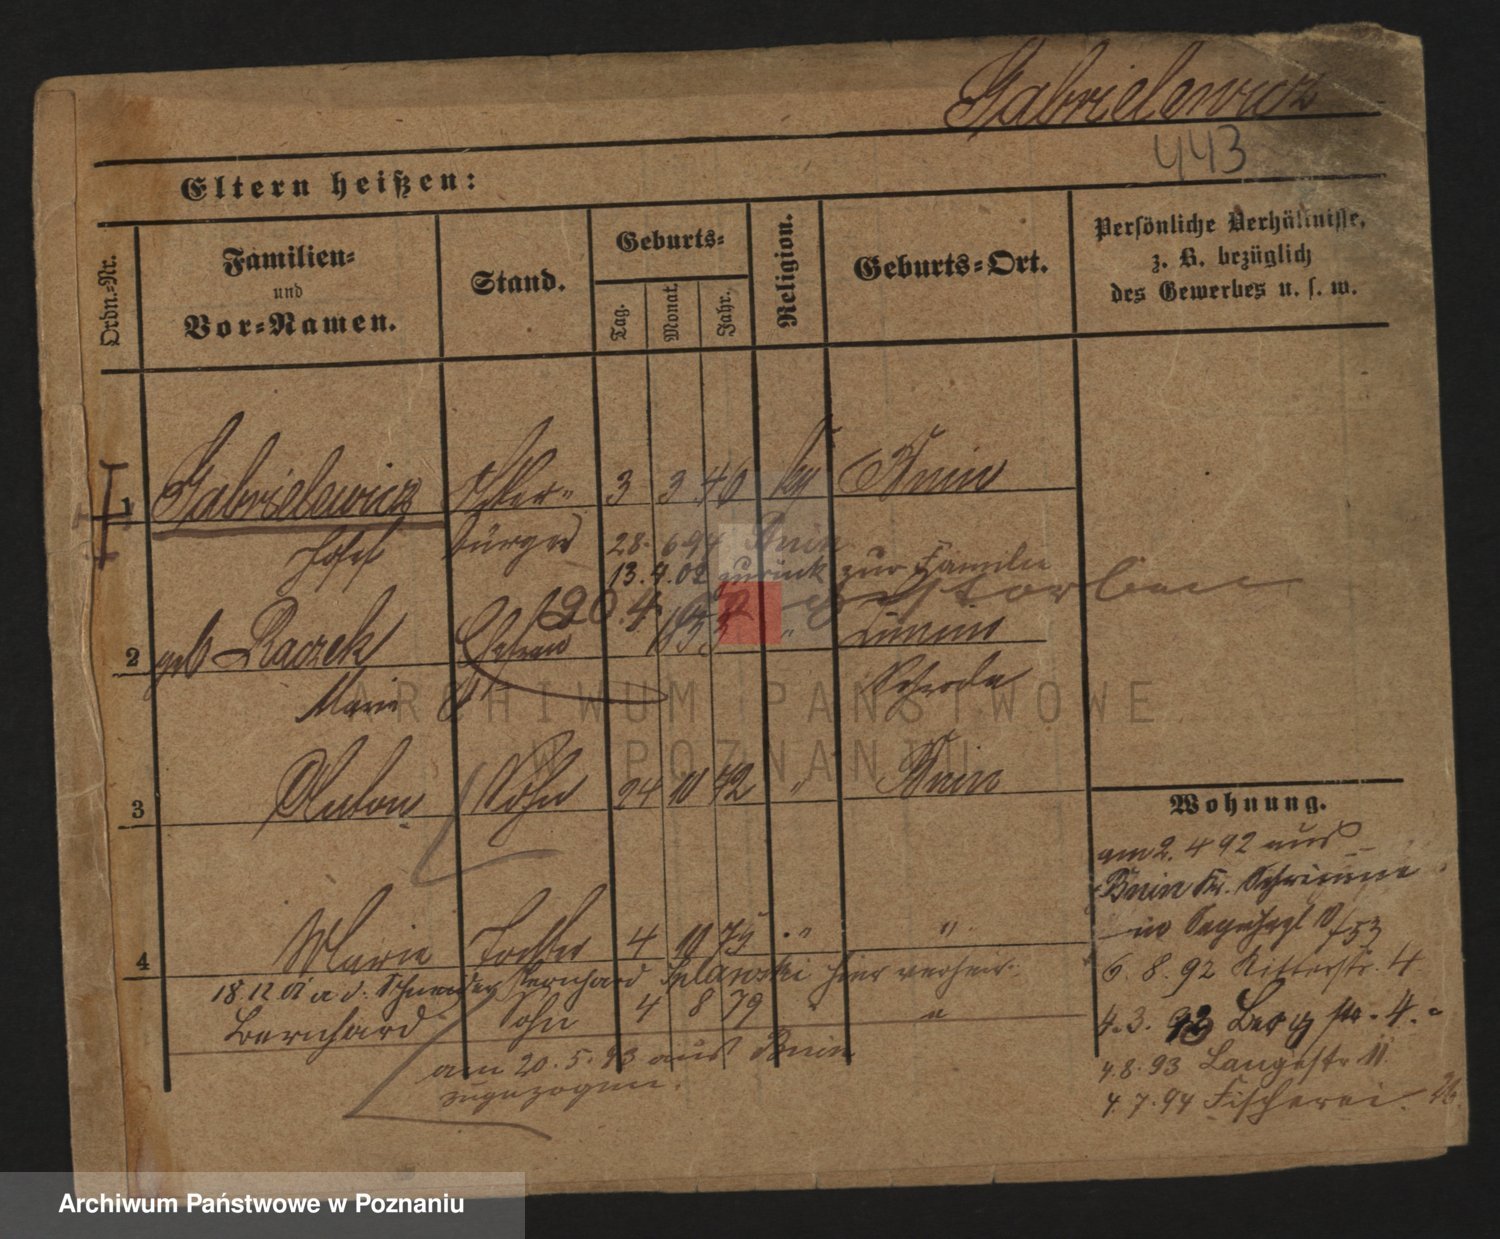 Gabrielewicz
443
Eltern heißen:
Ordn.-Nr.
Familien-
und
Vor-Namen.
Stand.
Geburts-
Tag.
Monat.
Jahr.
Religion.
Geburts-Ort.
Persönliche Verhältnisse,
z. B. bezüglich
des Gewerbes u. s. w.
1 Gabrielewicz 3 3 40 Bnin
Josef bürger 28. 6 94 Bnin
13. 4. 02 zurück zur Familie
20. 4. verstorben
2 geb Raczek Ehefrau 53 "
Marie Schroda
3 Anton Sohn 24 10 72 " Bnin
4 Marie Tochter 4 10 75 " "
18. 12 a. d. Schneider Bernhard hier verheir.
Bernhard Sohn 4 8 79 " "
am 20. 5. 93 aus Bnin
zugezogen.
Wohnung.
am 2. 4 92 aus
Bnin Kr. Schrimm
in
6. 8. 92 Ritterstr. 4
4. 3. 93 Bergstr. 4.
4. 8. 93 Langestr 11
4. 7. 94 Fischerei 26.
ARCHIWUM PAŃSTWOWE
W POZNANIU
Archiwum Państwowe w Poznaniu